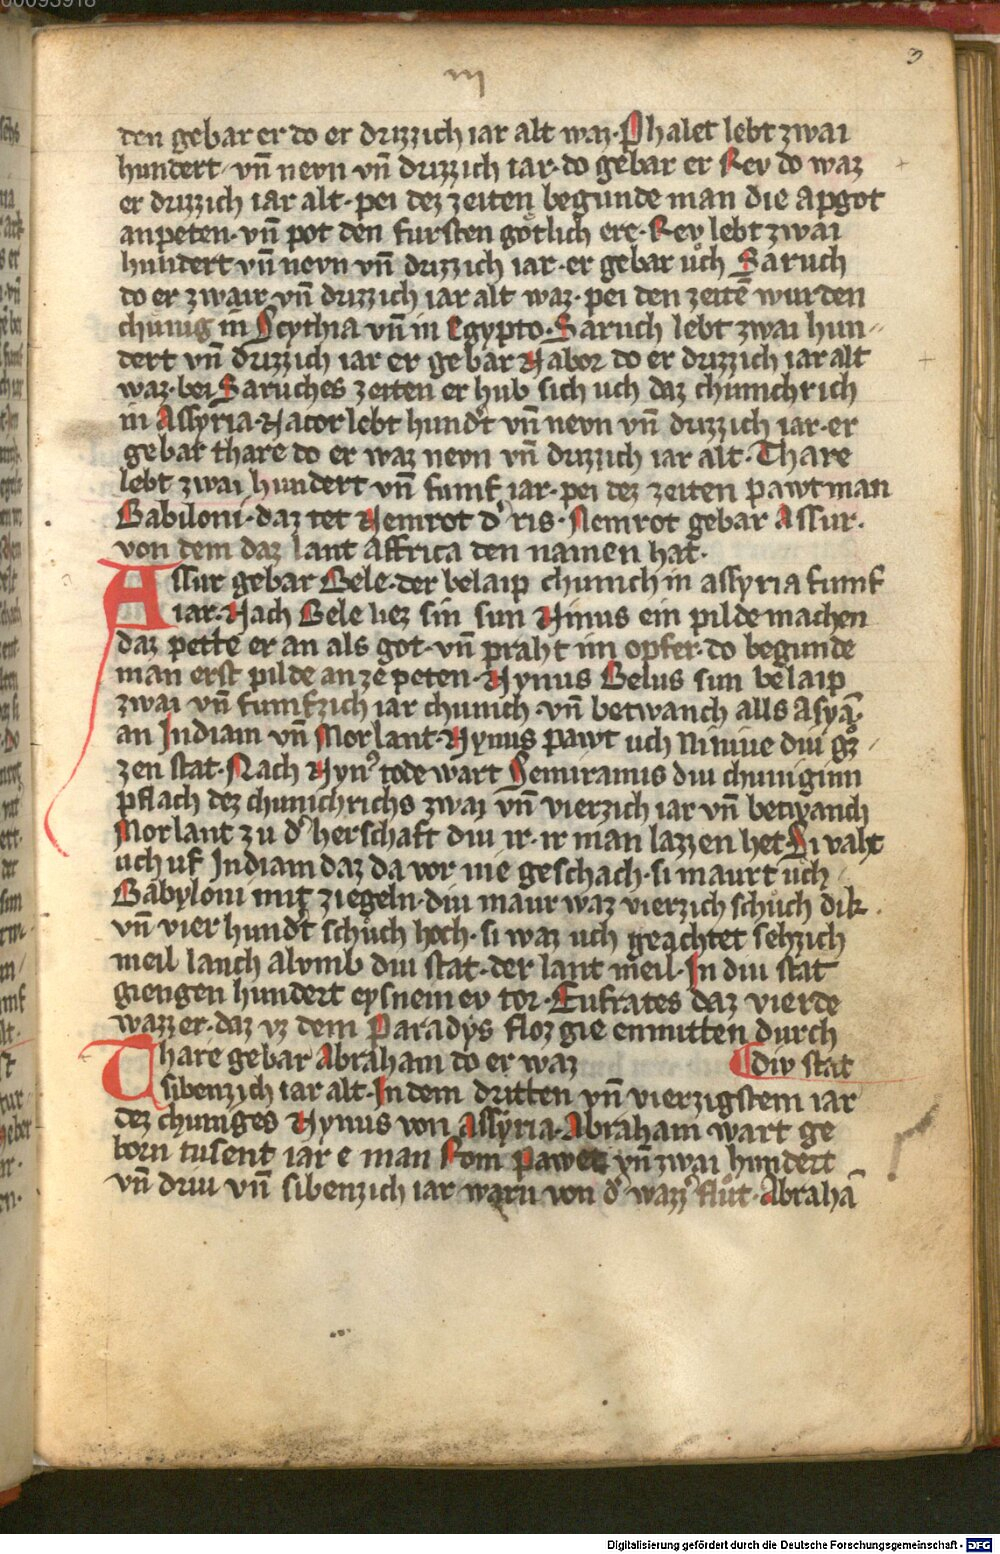 00093918
III
3
den gebar er do er drizzich iar alt waz · Phalet lebt zwai
hundert · vn̄ nevn vn̄ drizzich iar · do gebar er Rev do waz
er drizzich iar alt · pei dez zeiten begunde man die apgot
anpeten · vn̄ pot den fursten gotlich ere · Rev lebt zwai
hundert vn̄ nevn vn̄ drizzich iar · er gebar uͦch Saruch
do er zwair vn̄ drizzich iar alt waz · pei den zeitē wurden
chunig in Scythia vn̄ in Egypto · Saruch lebt zwai hun〃
dert vn̄ drizzich iar er gebar Nabor do er drizzich iar alt
waz · bei Saruches zeiten er hub sich uch daz chunichrich
in Assyria · Nacor lebt hund't vn̄ nevn vn̄ drizzich iar · er
gebar thare do er waz nevn vn̄ drizzich iar alt · Thare
lebt zwai hundert vn̄ fumf iar · pei dez zeiten pawt man
Babiloni · daz tet Nemrot d' ris · Nemrot gebar Assur ·
von dem daz lant Affrica den namen hat ·
Assur gebar Bele · der belaip chunich in assyria fumf
iar · Nach Bele liez sin sun Ninus ein pilde machen
daz pette er an als got · vn̄ praht im opfer · do begunde
man erst pilde an ze peten · Nynus Belus sun belaip
zwai vn̄ fumfzich iar chunich · vn̄ betwanch alls Asyā ·
an Indiam vn̄ Morlant · Nynus pawt uch Niniue diu gͦz
zen stat · Nach Nyn' tode wart Semiramis diu chuniginn
pflach dez chunichrichs zwai vn̄ vierzich iar vn̄ betwanch
Morlant zu d' herschaft diu ir · ir man lazzen het Si vaht
uch uf Indiam daz da vor nie geschach · si maurt uͦch
Babyloni mit ziegeln · diu maur waz vierzich schuͦch dik ·
vn̄ vier hund't schuͦch hoch · si waz uch geachtet sehzich
meil lanch alvmb diu stat · der lant meil · In diu stat
giengen hundert eysneinev tor · Eufrates daz vierde
wazzer · daz vz dem Paradys floz gie enmitten durch
Thare gebar Abraham do er waz div stat
sibenzich iar alt · In dem dritten vn̄ vierzigstem iar
dez chuniges Nynus von Assyria · Abraham wart ge
born tusent iar e man Rom pawet vn̄ zwai hundert
vn̄ driu vn̄ sibenzich iar warn von d' wazz' fluͦt · Abrahā
Digitalisierung gefördert durch die Deutsche Forschungsgemeinschaft - DFG